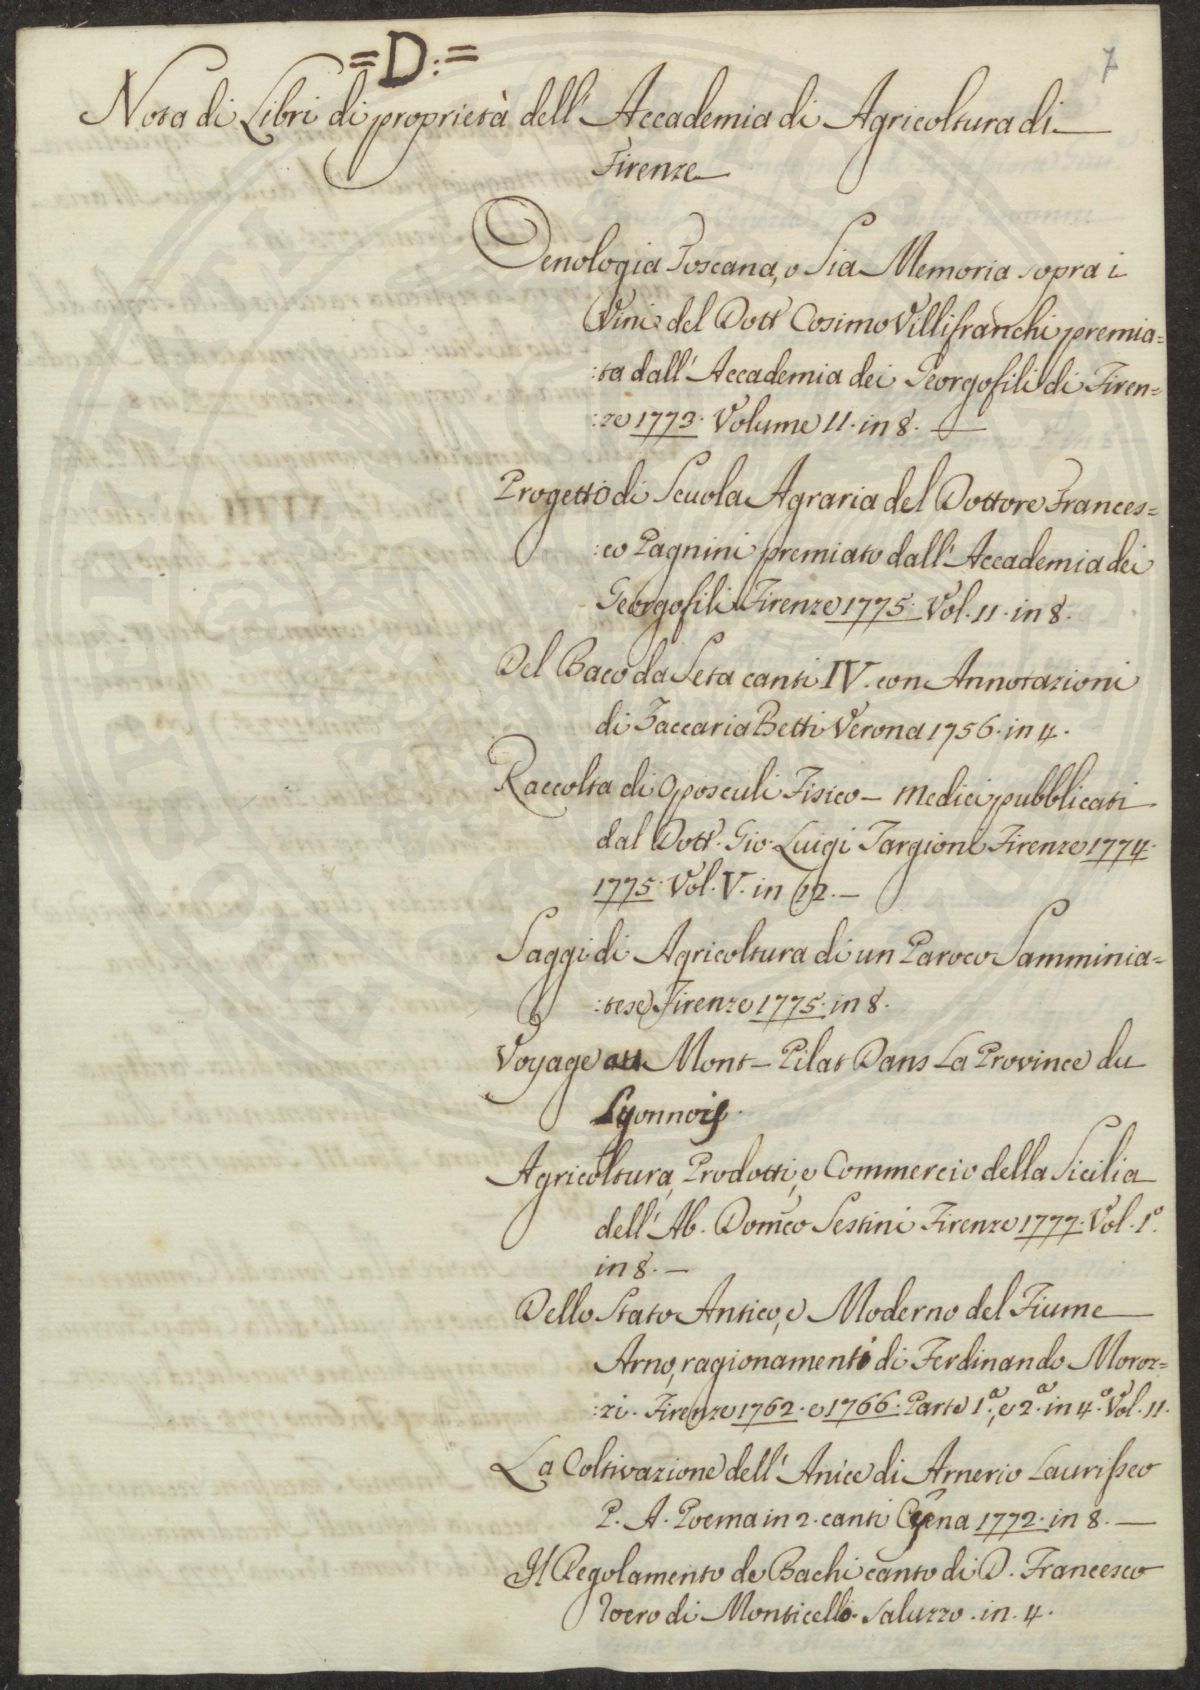 =D:=
7
Nota di Libri di proprietà dell' Accademia di Agricoltura di
Firenze
Oenologia Toscana, o Sia Memoria sopra i
Vini del Dott Cosimo Villifranchi premia=
:ta dall' Accademia dei Georgofili di Firen=
:ze 1773. Volume II. in 8.
Progetto di Scuola Agraria del Dottore Frances=
:co Pagnini premiato dall' Accademia dei
Georgofili Firenze 1775. Vol. II. in 8.
Del Baco da Seta canti IV. con Annotazioni
di Zaccaria Betti Verona 1756. in 4.
Raccolta di Oposculi Fisico - Medici pubblicati
dal Dott. Gio. Luigi Targioni Firenze 1774.
1775. Vol. V. in 12. —
Saggi di Agricoltura di un Paroco Samminia=
:tese Firenze 1775. in 8.
Voyage au Mont - Pilat Dans La Province du
Lyonnois.
Agricoltura, Prodotti, e Commercio della Sicilia
dell' Ab. Domco Sestini Firenze 1777. Vol. 1º.
in 8. —
Dello Stato Antico, e Moderno del Fiume
Arno, ragionamenti di Ferdinando Moroz=
:zi. Firenze 1762. e 1766. Parte 1.ª, e 2.ª in 4.º Vol. II.
La Coltivazione dell' Anice di Arnerio Laurisseo
P. A. Poema in 2. canti 1772. in 8. —
Il Regolamento de Bachi canto di D. Francesco
Roero di Monticello Saluzzo. in. 4.